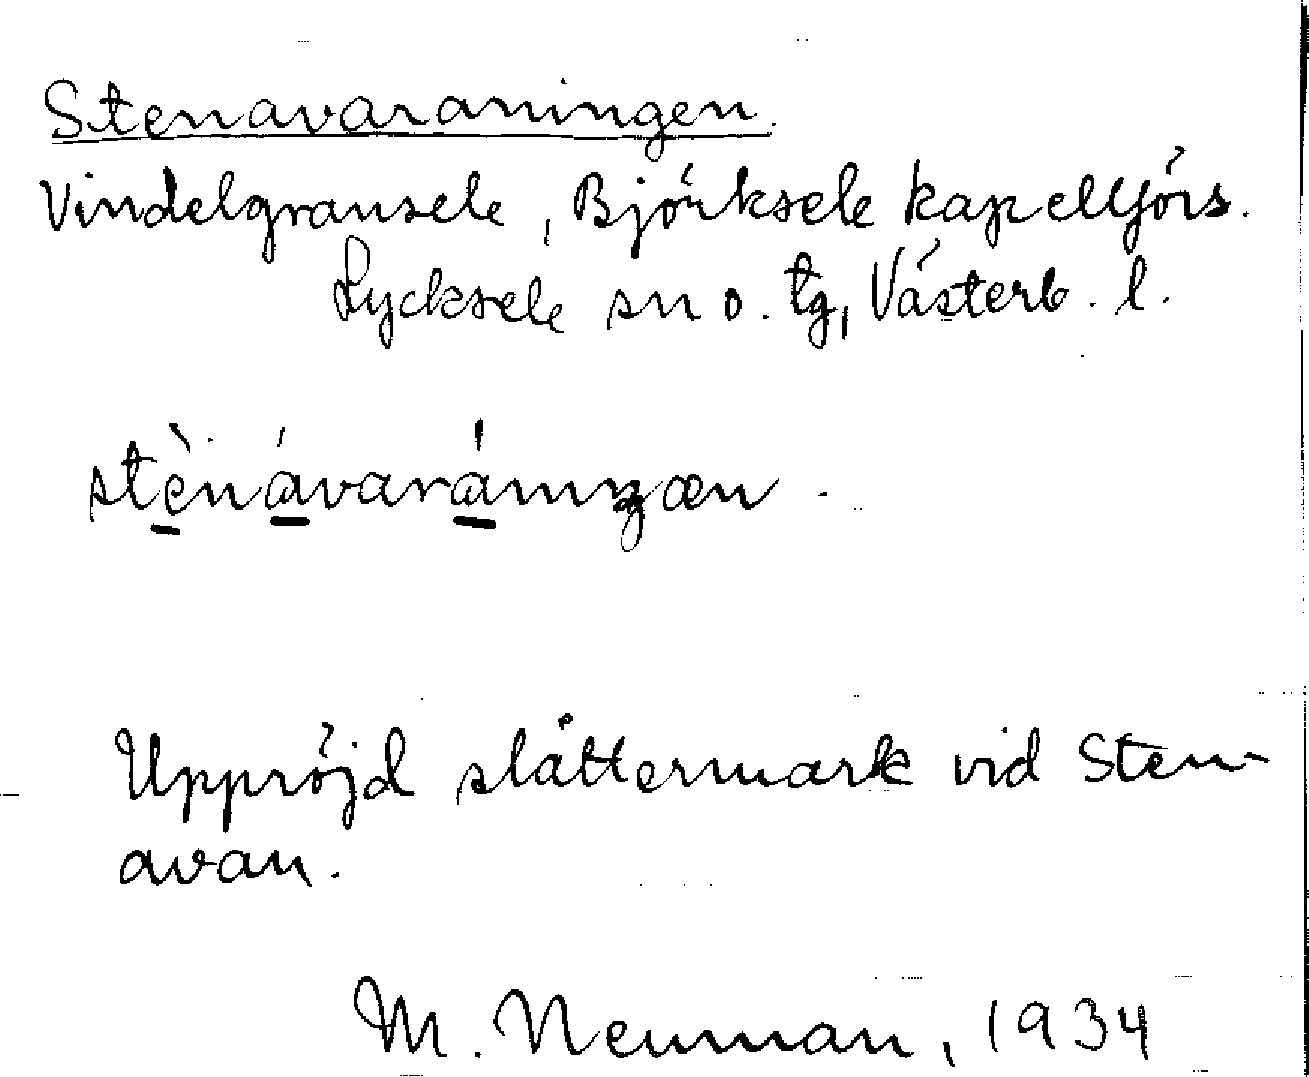 Stenavaraningen.
Vindelgransele, Björksele kapellförs.
Lycksele sn o. tg, Västerb. l.
stènávaráningæn.
Uppröjd slåttermark vid Sten-
avan.
M. Neuman, 1934